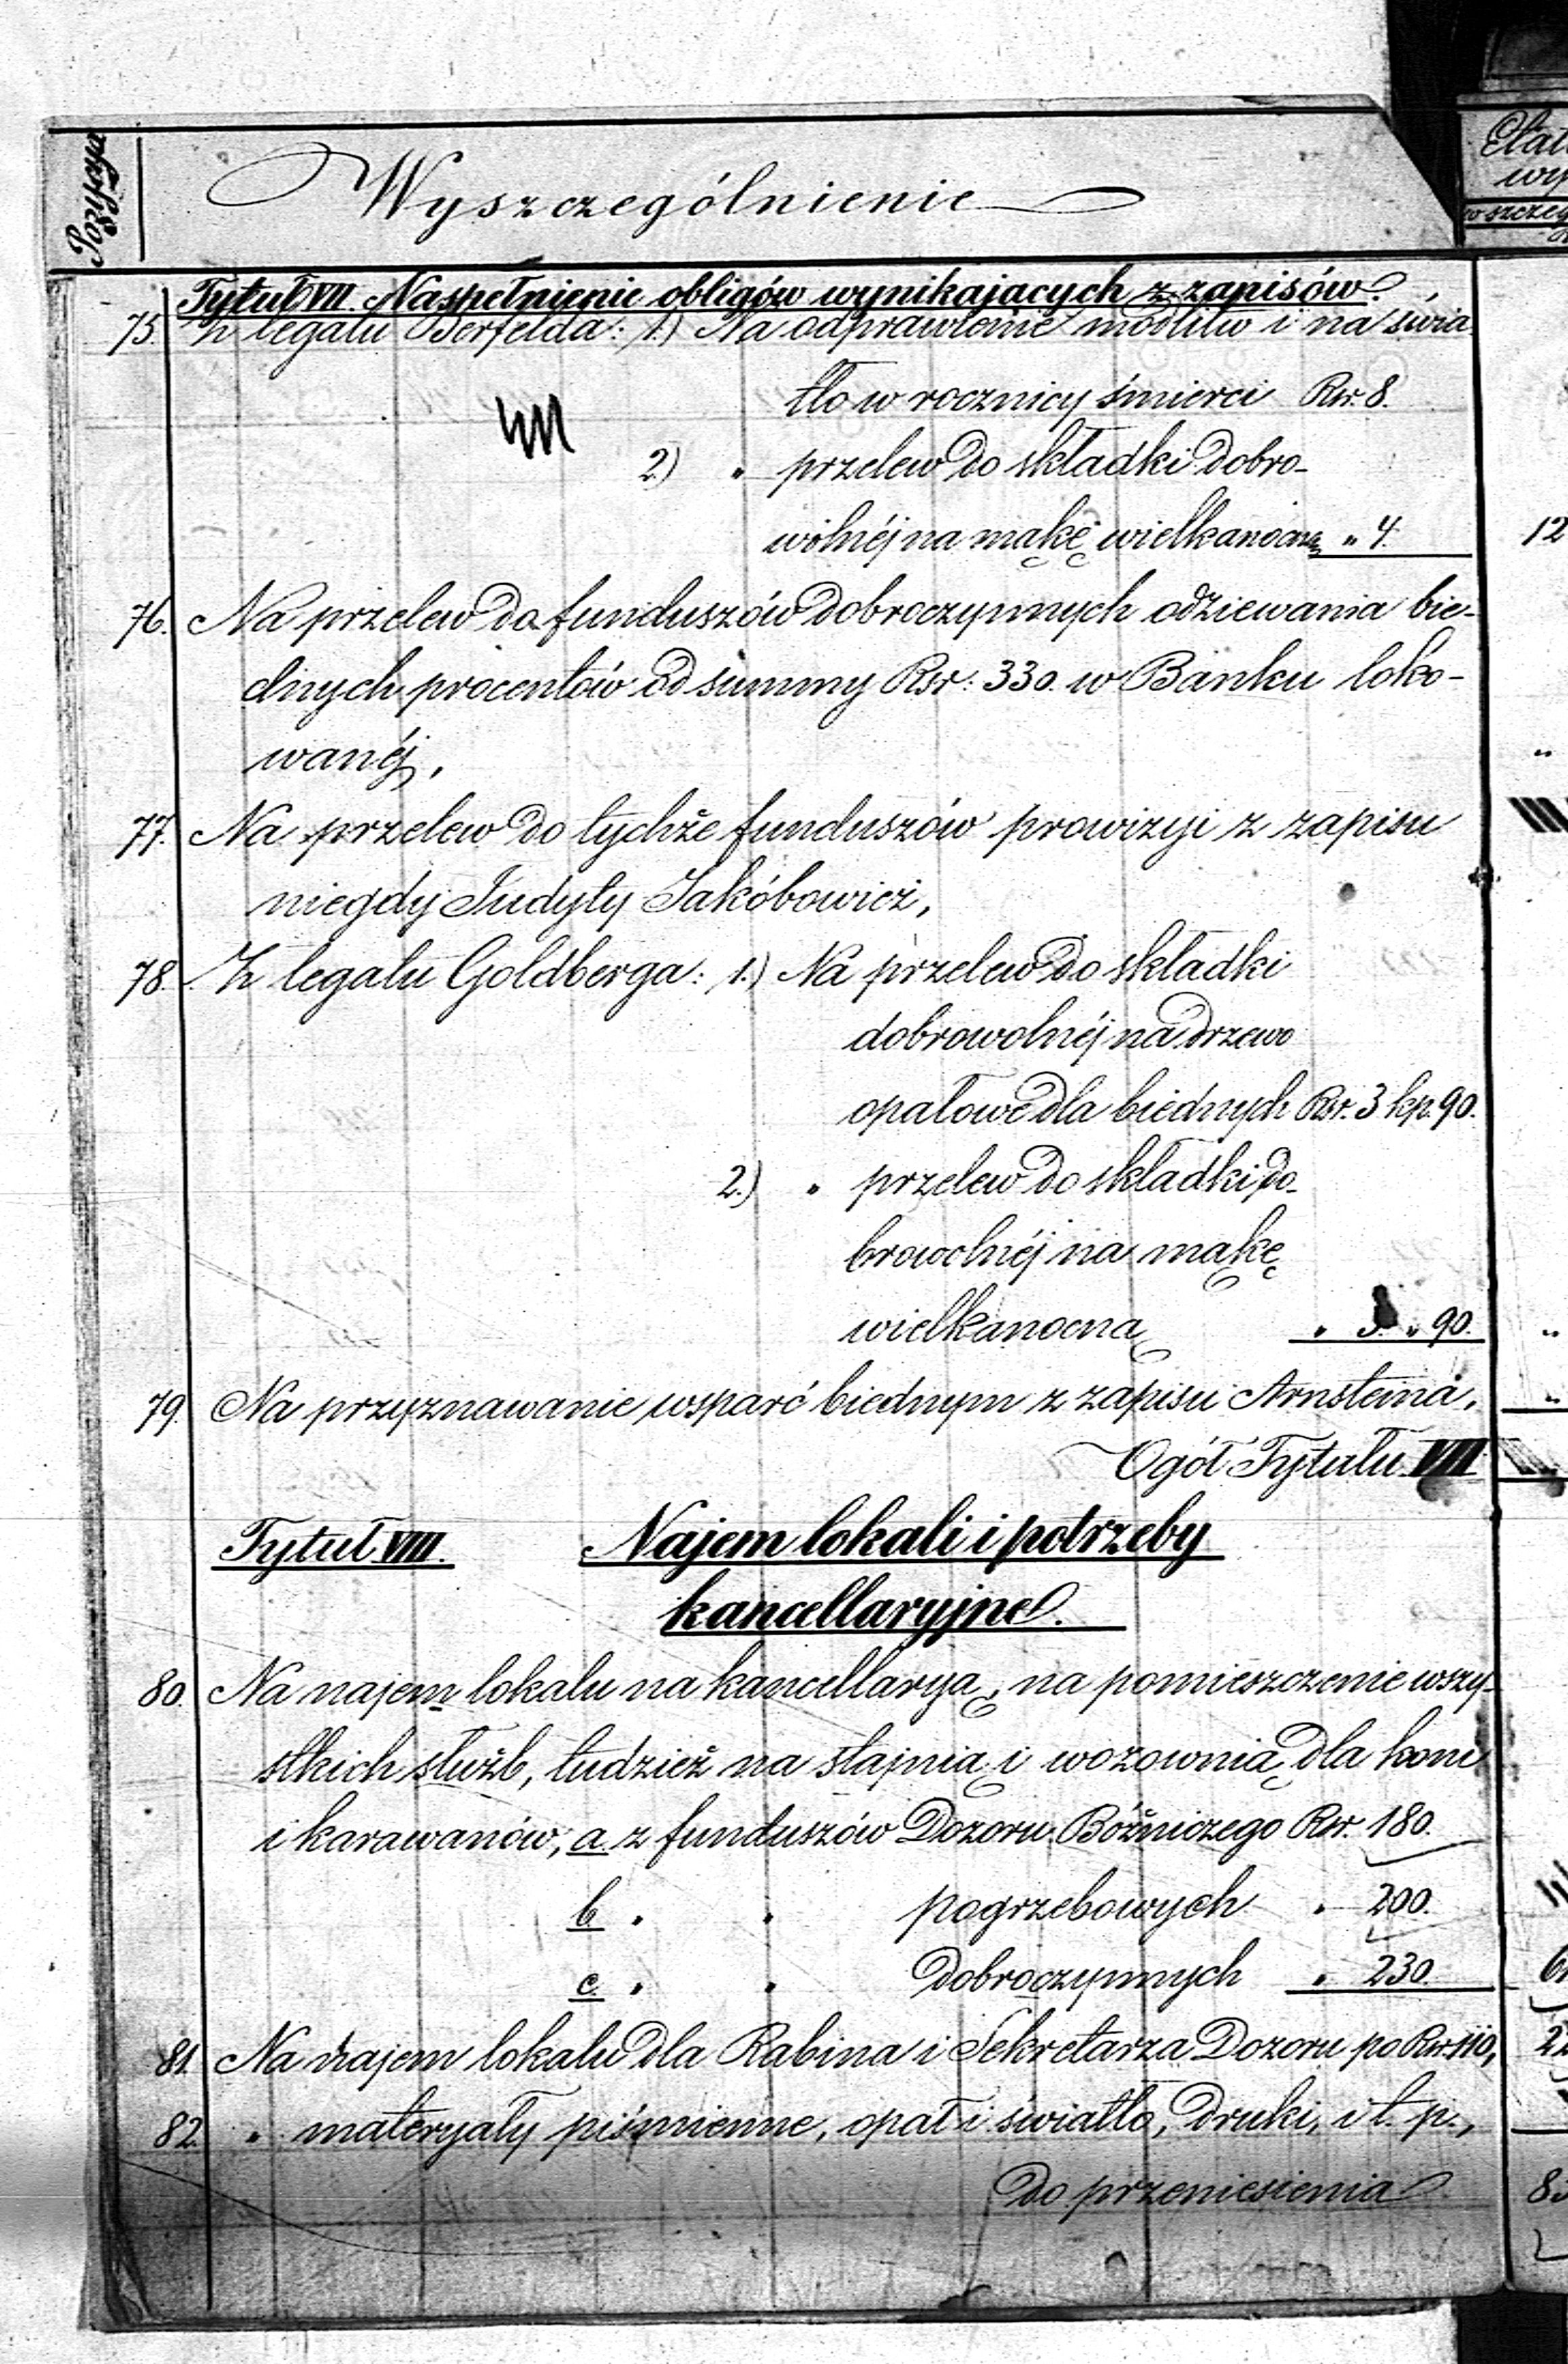 Pozycya
Wyszczególnienie
Tytuł VII. Na spełnienie obligów wynikających z zapisów.
75. Z legatu Berfelda: 1.) Na odprawienie modlitw i na świa-
tło w rocznicy śmierci Rsr. 8.
2.) " przelew do składki dobro-
wolnéj na mąkę wielkanocną " 4. 12
76. Na przelew do funduszów dobroczynnych odziewania bie-
dnych procentów od summy Rsr: 330. w Banku loko-
wanéj, "
77. Na przelew do tychże funduszów prowizyi z zapisu
niegdy Judyty Jakóbowicz,
78. Z legatu Goldberga: 1.) Na przelew do składki
dobrowolnéj na drzewo
opałowe dla biednych Rsr. 3 kp. 90.
2.) " przelew do składki do-
browolnéj na mąkę
wielkanocną " 3. " 90. "
79. Na przyznawanie wsparć biednym z zapisu Arnsteina, "
Ogół Tytułu VII
Tytuł VIII. Najem lokali i potrzeby
kancellaryjne.
80. Na najem lokalu na kancellaryą, na pomieszczenie wszy-
stkich służb, tudzież na stajnią i wozownią dla koni
i karawanów, a. z funduszów Dozoru Bóźniczego Rsr. 180.
b " " pogrzebowych " 200.
c. " " dobroczynnych " 230.
81. Na najem lokalu dla Rabina i Sekretarza Dozoru po Rsr. 110,
82. " materyały piśmienne, opał i światło, druki, i t. p.,
do przeniesienia